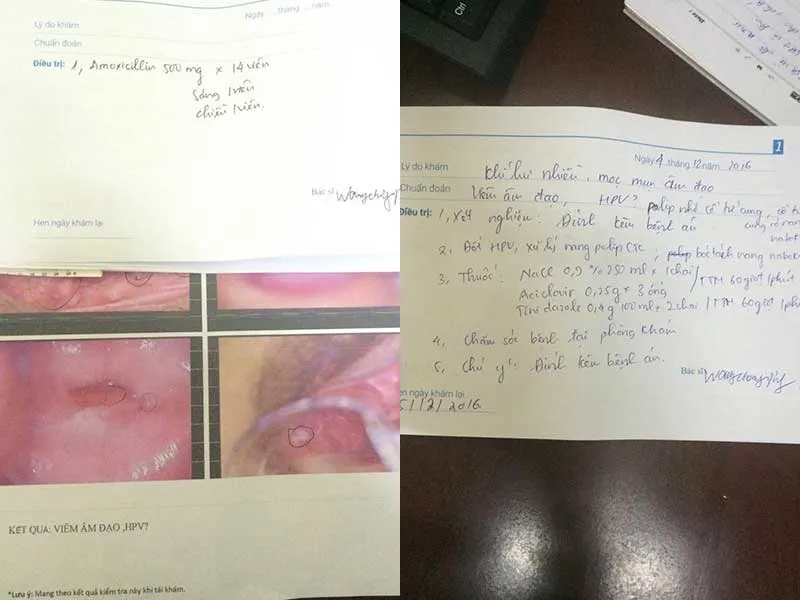 Ngày ....tháng ....năm
Lý do khám
Chuẩn đoán
Điều trị: 1, Amoxicillin 500 mg x 14 viên
Sáng 1 viên
chiều 1 viên.
Bác sĩ
Hẹn ngày khám lại
KẾT QUẢ: VIÊM ÂM ĐẠO ,HPV?
*Lưu ý: Mang theo kết quả kiểm tra này khi tái khám.
Ctrl
1
Ngày 4 tháng 12 năm 2016
Lý do khám Khí hư nhiều, mọc mụn âm đạo
Chuẩn đoán Viêm âm đạo, HPV? polip nhỏ cổ tử cung, cổ tử
cung có nang
naboth
Điều trị: 1, Xét nghiệm: Đính kèm bệnh án
2, Đốt HPV, xử lý nang polip CTC, bóc tách nang naboth
3, Thuốc: NaCl 0,9 % 250 ml x 1 chai / TTM 60 giọt 1 phút
Aciclovir 0,25g x 3 ống
Tinidazole 0,4g 100ml x 2 chai / TTM 60 giọt 1 phút
4, Chăm sóc bệnh tại phòng khám
5, Chú ý: Đính kèm bệnh án.
Bác sĩ
ẹn ngày khám lại
5/12/2016